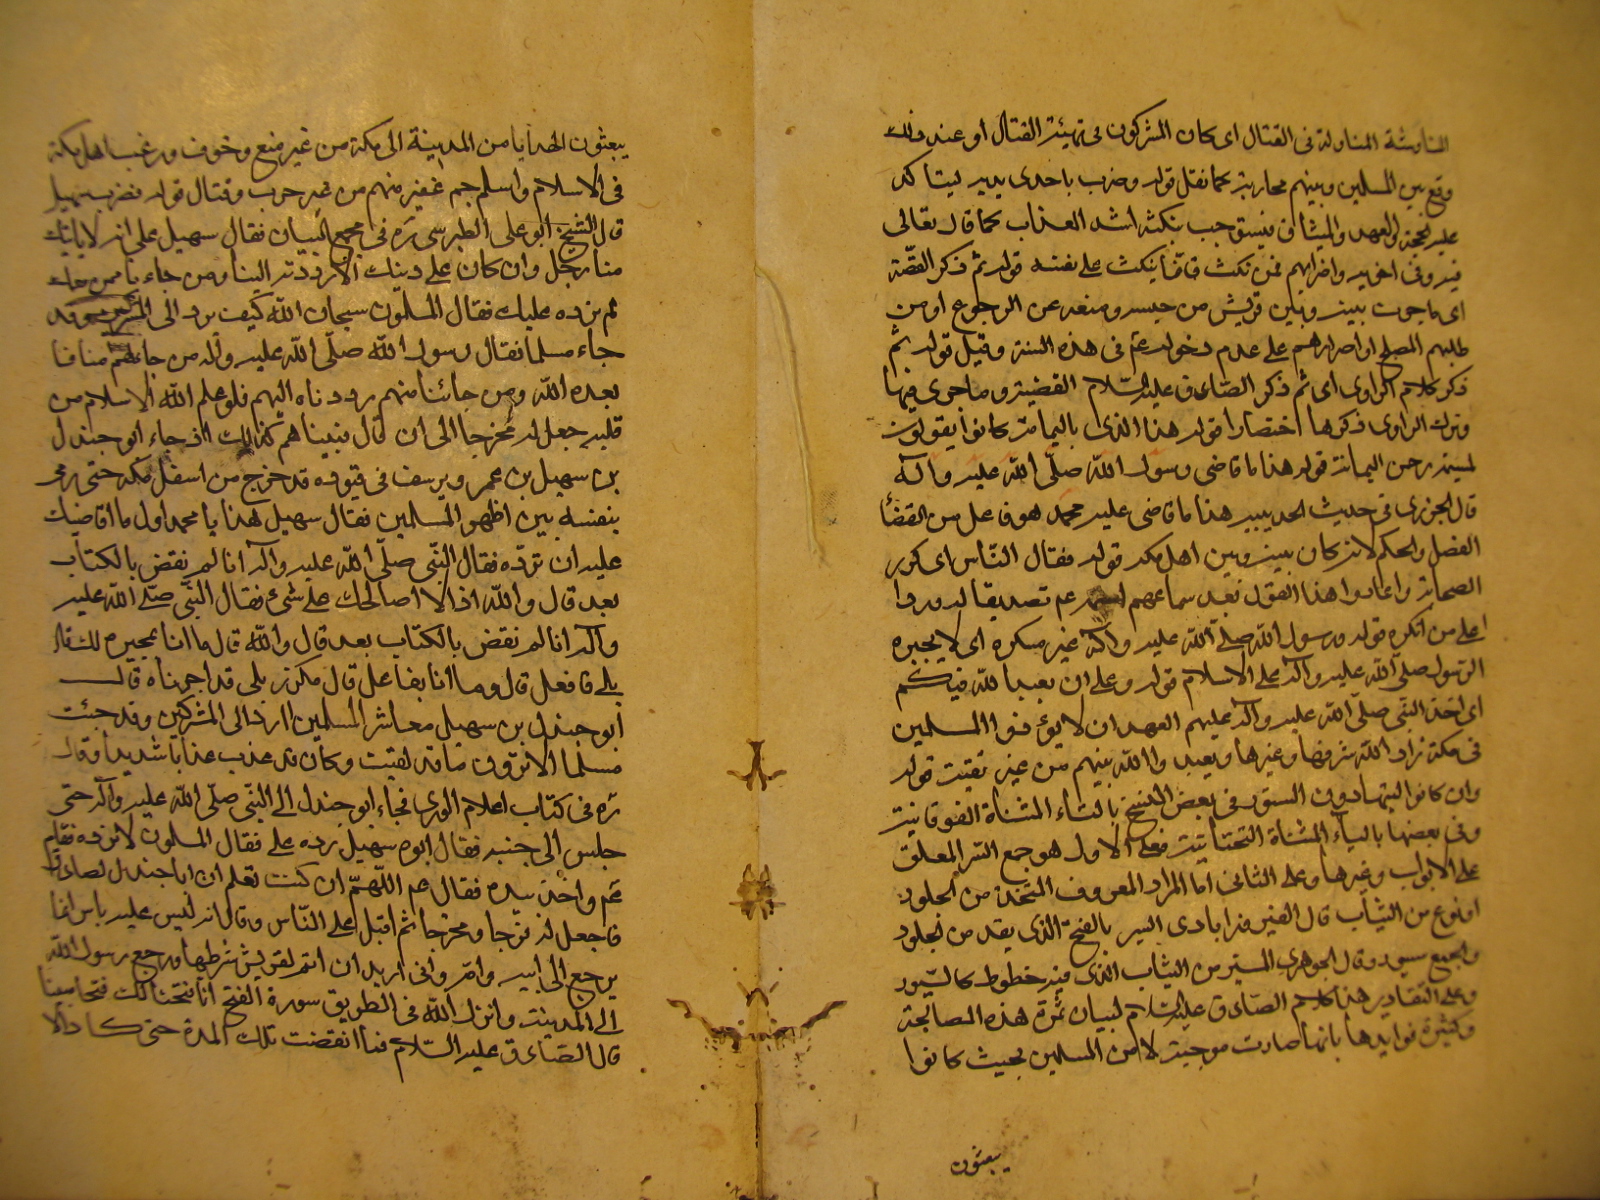 المناوشة المناولة فى القتال اى كان المشركون فى تهيئة القتال او عند ذلك
وقع بين المسلمين وبينهم محاربة كما نقل قوله وضرب باحدى يديه ليتاكد
عليه الحجة والعهد والميثاق فيستوجب بنكثه اشد العذاب كما قال تعالى
فيه وفى اخيه واضرابهم فمن نكث فانما ينكث على نفسه قوله ثم ذكر القصة
اى ما جرت بينه وبين قريش من حبسه ومنعه عن الرجوع او من
طلبهم الصلح او اصرارهم على عدم دخوله عم فى هذه السنة وقيل قوله ثم
ذكر كلام الراوى اى ثم ذكر الصادق عليه السلام القضية وما جرى فيها
وترك الراوى ذكرها اختصارا قوله هذا الذى باليمامة كانوا يقولون
لمسيلمة رحمن اليمامة قوله هذا ما قاضى رسول الله صلى الله عليه وآله
قال الجزرى فى حديث الحديبية هذا ما قاضى عليه محمد هو فاعل من القضأ
الفصل والحكم لانه كان بينه وبين اهل مكة قوله فقال الناس اى كرر
الصحابة واعادوا هذا القول بعد سماعهم عم تصديقا له وردا
على من انكره قوله ورسول الله صلى الله عليه وآله غير مستكره اى لا يجبره
الرسول صلى الله عليه وآله على الاسلام قوله وعلى ان يعبد الله فيكم
اى اخذ النبى صلى الله عليه وآله عليهم العهد ان لا يؤذوا المسلمين
فى مكة زاد الله شرفها وغيرها ويعبدوا الله بينهم من غير تقية قوله
وان كانوا ليتهادون الستور فى بعض النسخ بالتاء المثناة الفوقانية
وفى بعضها بالياء المثناة التحتانية فعلى الاول هو جمع الستر المعلق
على الابواب وغيرها وعلى الثانى اما المراد المعروف المتخذ من الجلود
او نوع من الثياب قال الفيروزابادى السير بالفتح الذى يقد من الجلود
والجمع سيور وقال الجوهرى السير من الثياب الذى فيه خطوط كالسيور
وعلى التقادير هذا كلام الصادق عليه السلام لبيان ثمرة هذه المصالحة
وكثرة فوايدها بانها صارت موجبة لامن المسلمين بحيث كانوا
يبعثون
يبعثون الهدايا من المدينة الى مكة من غير منع وخوف ورغب اهل مكة
فى الاسلام واسلم جم غفير منهم من غير حرب وقتال قوله فضرب سهيل
قال الشيخ ابو على الطبرسى ره فى مجمع البيان فقال سهيل على انه لا ياتيك
منا رجل وان كان على دينك الا رددته الينا ومن جاء نا ممن معك
لم نرده عليك فقال المسلمون سبحان الله كيف يرد الى المشركين وقد
جاء مسلما فقال رسول الله صلى الله عليه وآله من جاءهم منا فا
بعده الله ومن جائنا منهم رددناه اليهم فلو علم الله الاسلام من
قلبه جعل له مخرجا الى ان قال فبينا هم كذلك اذ جاء ابو جندل
بن سهيل بن عمرو يرسف فى قيوده قد خرج من اسفل مكة حتى رمى
بنفسه بين اظهر المسلمين فقال سهيل هذا يا محمد اول ما اقاضيك
عليه ان ترده فقال النبى صلى الله عليه وآله انا لم نقض بالكتاب
بعد قال والله اذا لا اصالحك على شئ فقال النبى صلى الله عليه
وآله انا لم نقض بالكتاب بعد قال والله قال ما انا بمجيره لك قال
بلى فافعل قال وما انا بفاعل قال مكرز بلى قد اجرناه قال
ابو جندل بن سهيل معاشر المسلمين ا ارد الى المشركين وقد جئت
مسلما الا ترون ما قد لقيت وكان قد عذب عذابا شديدا وقال
ره فى كتاب اعلام الورى فجاء ابو جندل الى النبى صلى الله عليه وآله حتى
جلس الى جنبه فقال ابوه سهيل رده على فقال المسلمون لا نرده فقام
عم واخذ بيده فقال عم اللهم ان كنت تعلم ان ابا جندل لصادق
فاجعل له فرجا ومخرجا ثم اقبل على الناس وقال انه ليس عليه باس انما
يرجع الى ابيه وامه وانى اريد ان اتم لقريش شرطها ورجع رسول الله
الى المدينة وانزل الله فى الطريق سورة الفتح انا فتحنا لك فتحا مبينا
قال الصادق عليه السلام فما انقضت تلك المدة حتى كاد الا